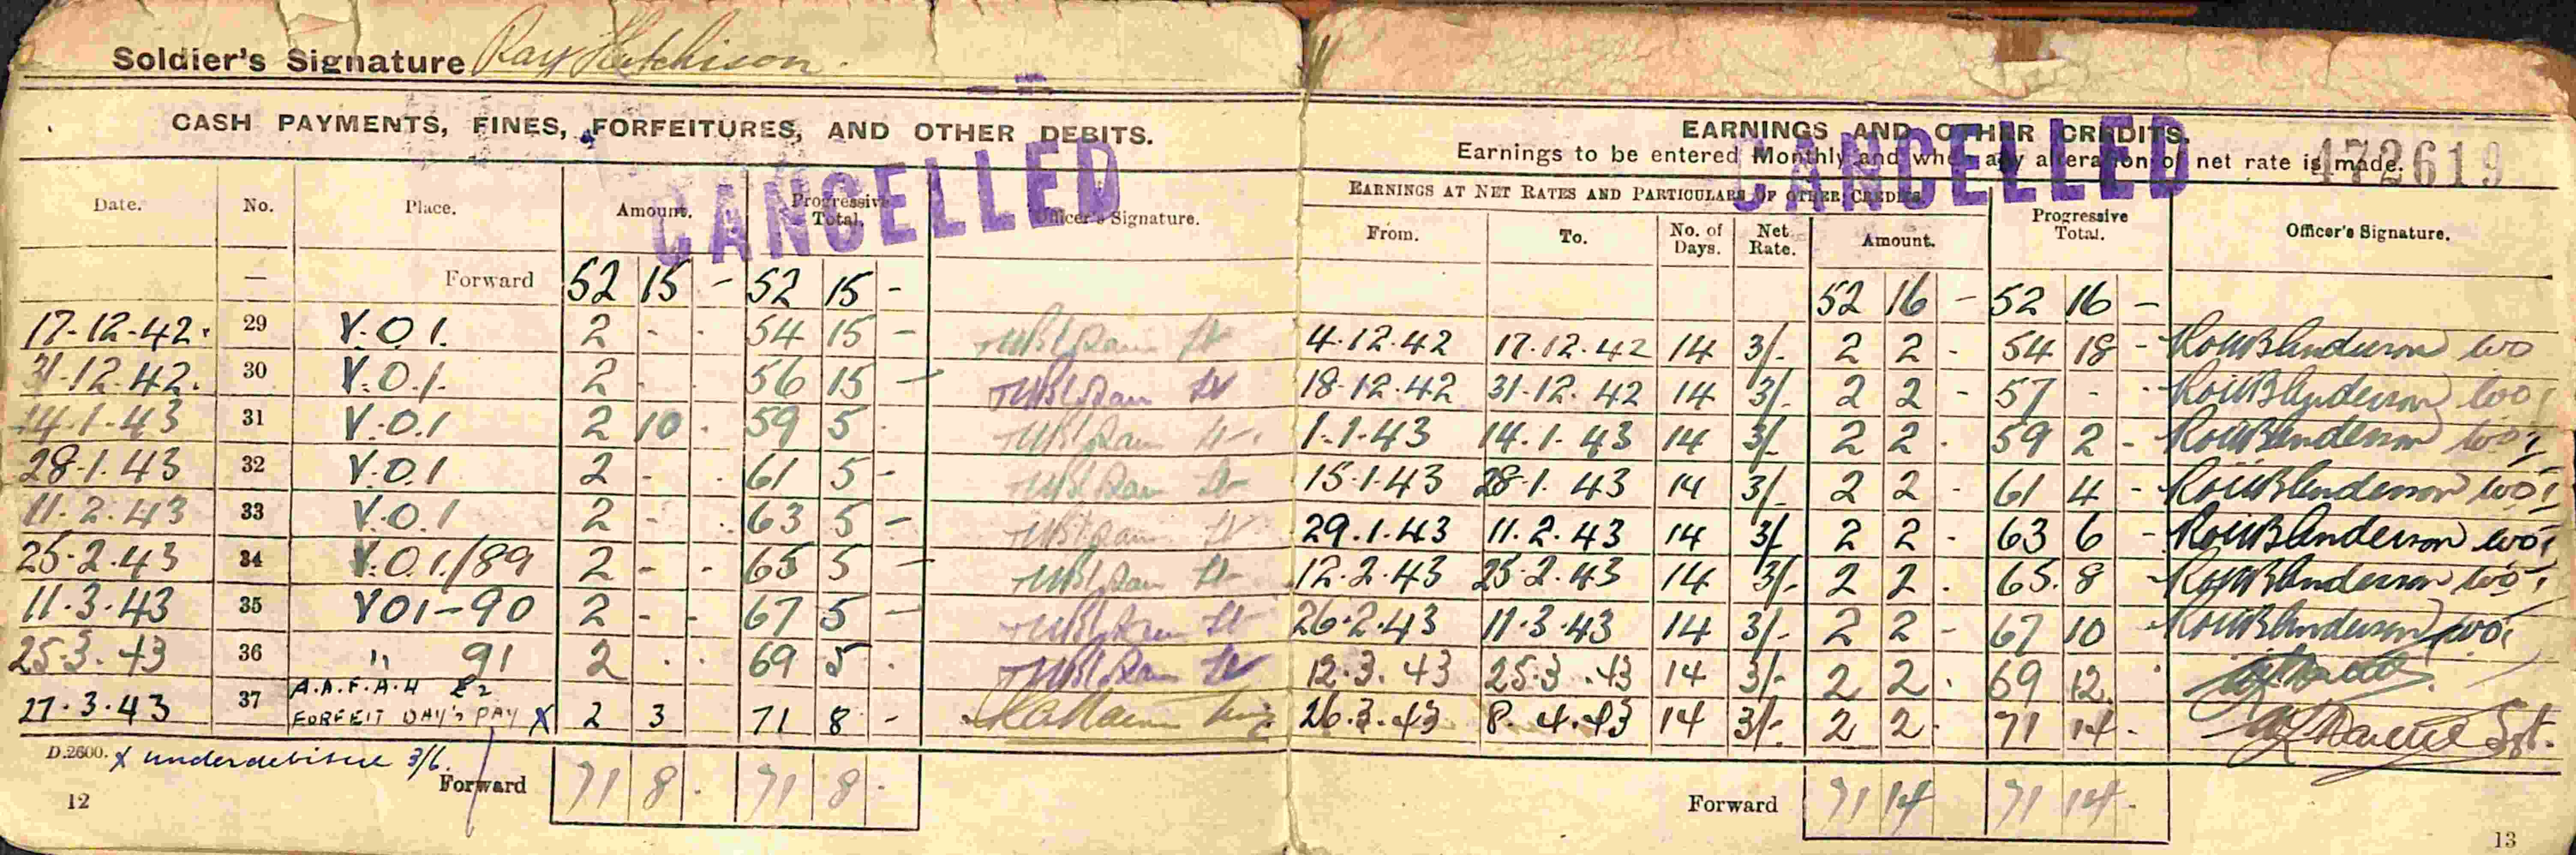 Soldier's Signature Ray Hutchison.
CASH PAYMENTS, FINES, FORFEITURES, AND OTHER DEBITS.
CANCELLED
Date. No. Place. Amount. Progressive Total. Officer's Signature.
— Forward 52 15 - 52 15 -
17-12-42. 29 V.O.1. 2 - - 54 15 -
31-12.42. 30 V.O.1. 2 - - 56 15 -
14-1-43 31 V.O.1 2 10 - 59 5 -
28-1.43 32 V.O.1 2 - - 61 5 -
11-2.43 33 V.O.1 2 - - 63 5 -
25-2.43 34 V.O.1./89 2 - - 65 5 -
11.3.43 35 VO1-90 2 - - 67 5 -
25.3.43 36 " 91 2 - - 69 5 -
27.3.43 37 A.A.F.A.H £2
FORFEIT DAY'S PAY X 2 3 71 8 -
D.2600. X underdebited 3/6.
Forward 71 8 - 71 8 -
12
EARNINGS AND OTHER CREDITS.
Earnings to be entered Monthly and when any alteration of net rate is made.
472619
CANCELLED
EARNINGS AT NET RATES AND PARTICULARS OF OTHER CREDITS.
From. To. No. of Days. Net Rate. Amount. Progressive Total. Officer's Signature.
52 16 - 52 16 -
4.12.42 17.12.42 14 3/- 2 2 - 54 18 - Anderson WO
18-12.42 31-12.42 14 3/- 2 2 - 57 - - Anderson WO1
1-1-43 14.1.43 14 3/- 2 2 - 59 2 - Anderson WO1
15-1-43 28-1.43 14 3/- 2 2 - 61 4 - Anderson WO1
29.1.43 11.2.43 14 3/- 2 2 - 63 6 - Anderson WO1
12.2.43 25.2.43 14 3/- 2 2 - 65.8 - Anderson WO1
26.2.43 11.3.43 14 3/- 2 2 - 67 10 - Anderson WO1
12.3.43 25.3.43 14 3/- 2 2 - 69 12.
26.3.43 8.4.43 14 3/- 2 2 - 71 14 - Sgt.
Forward 71 14 71 14 -
13